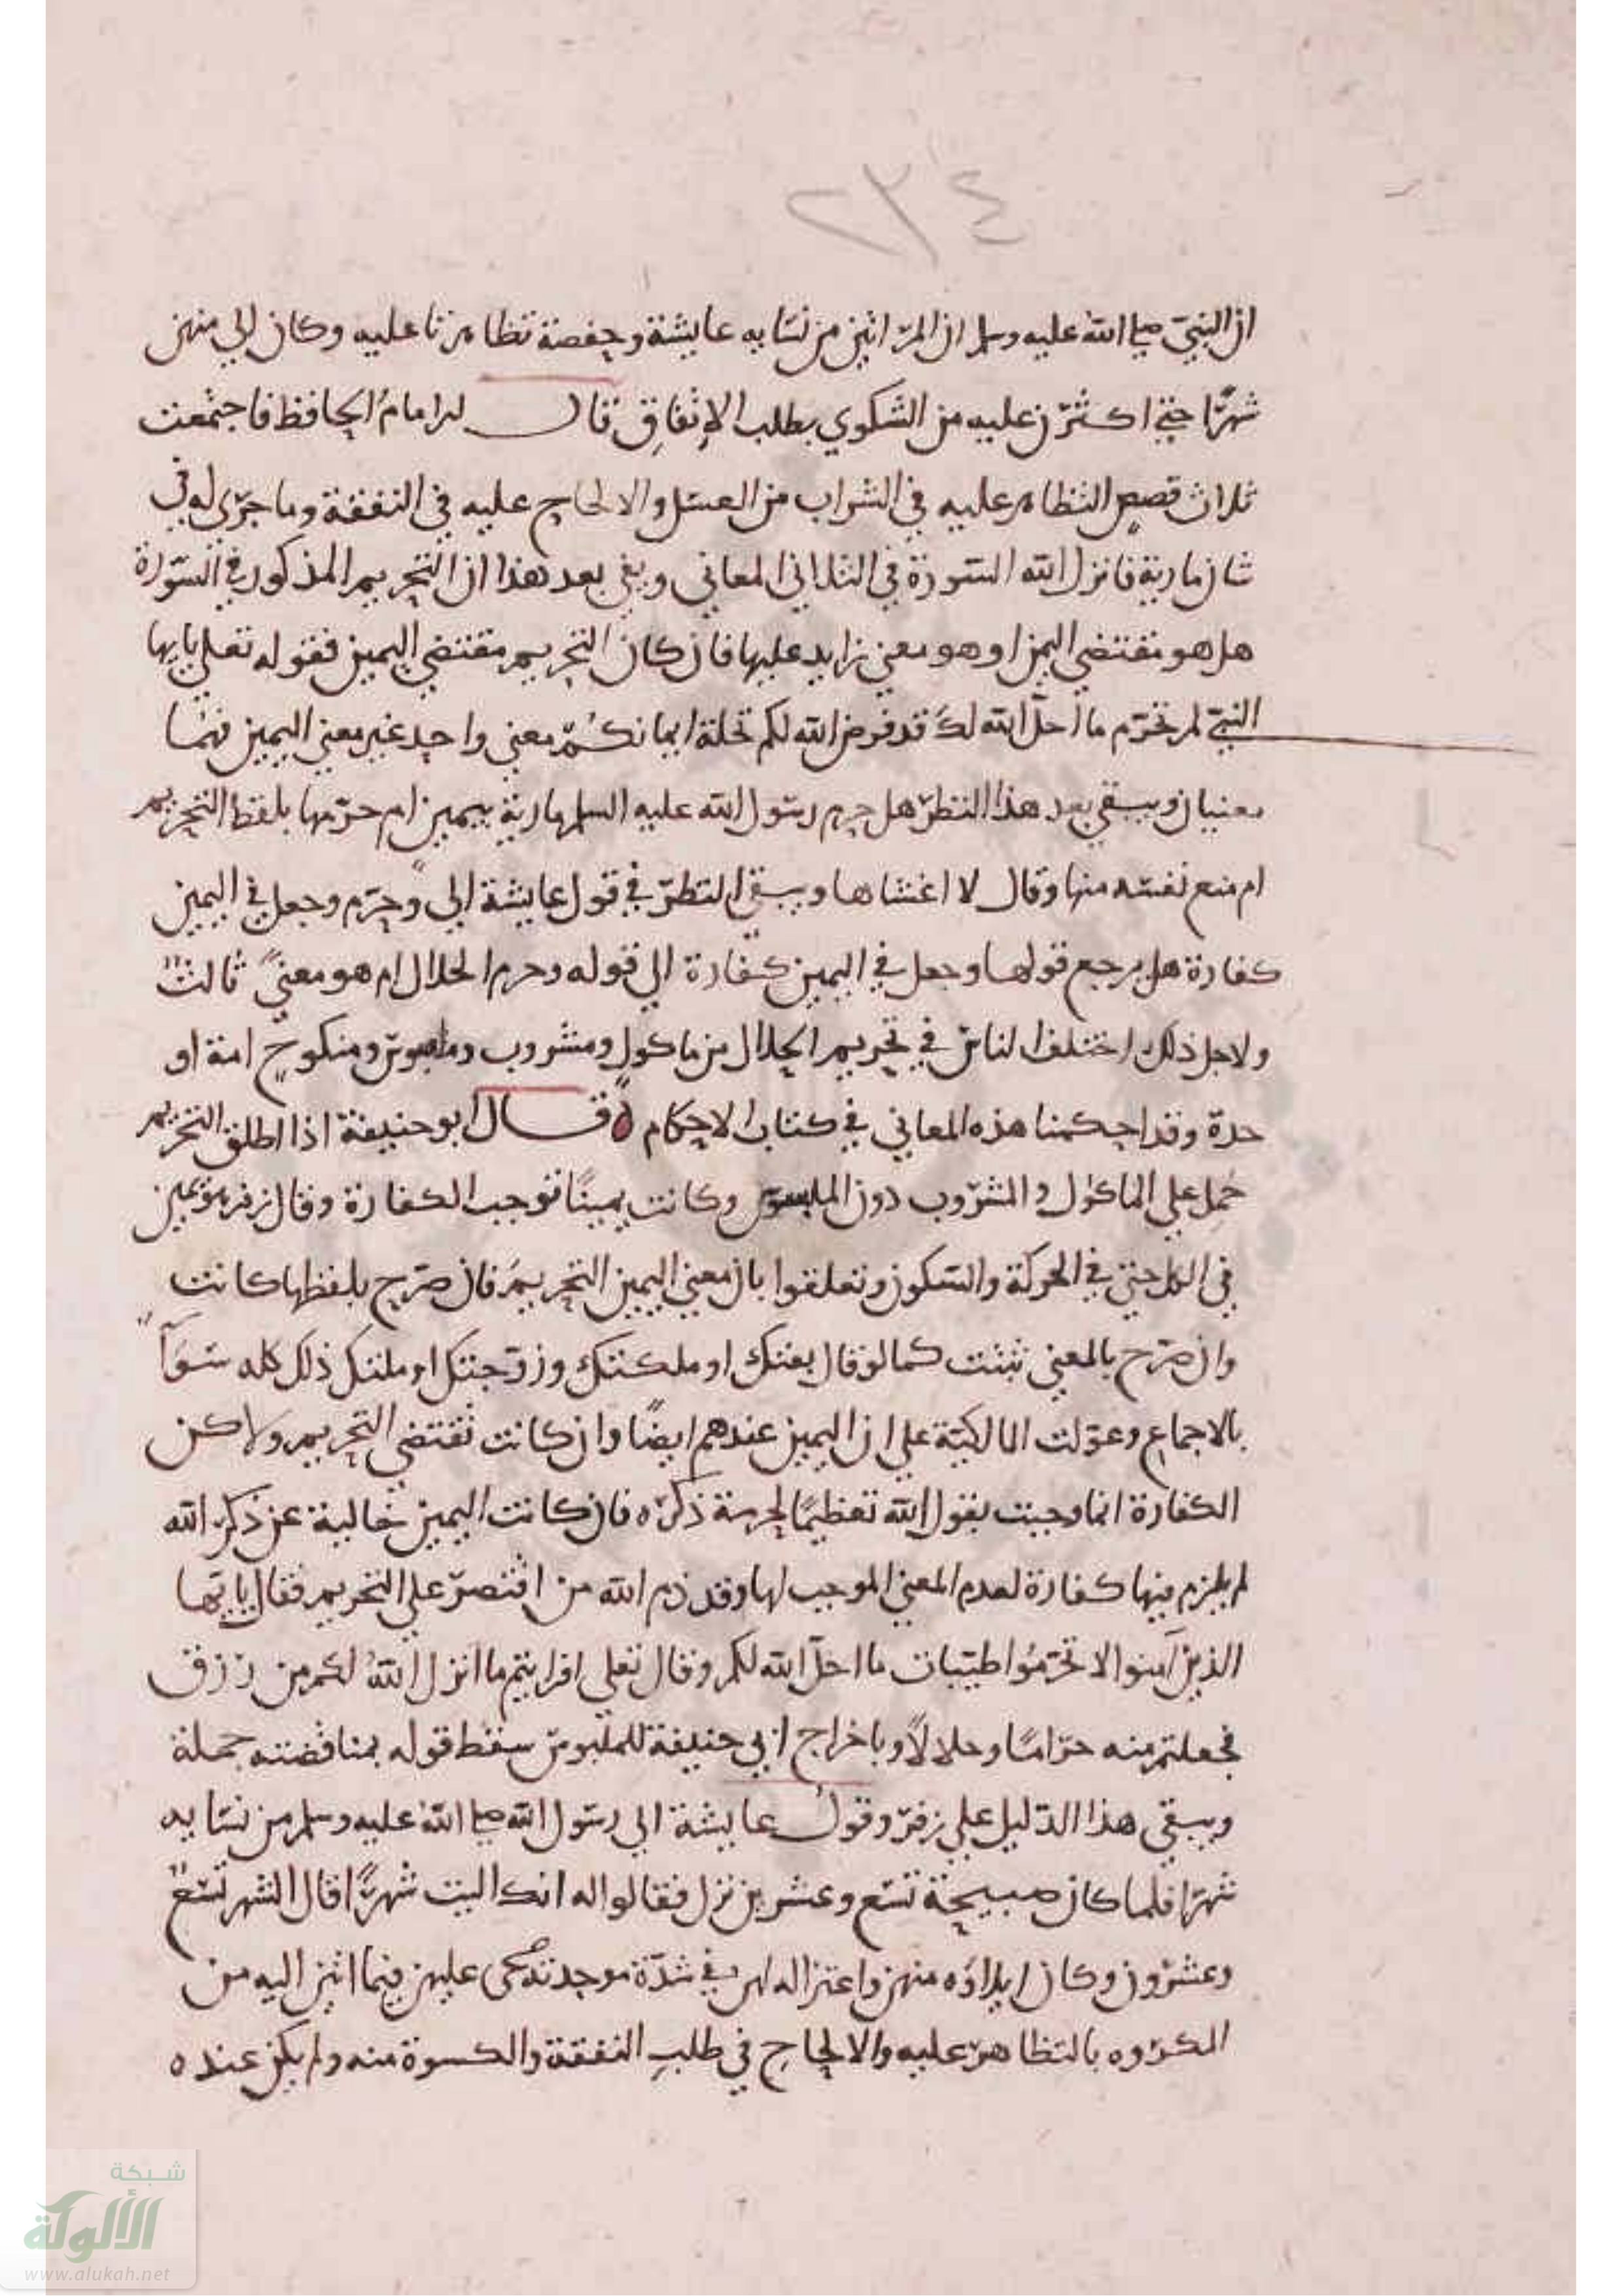 ٢٣٤
ان النبي صلى الله عليه وسلم ان المراتين من نسايه عايشة وحفصة تظاهرتا عليه وكان الى منهن
شهرًا حتى اكثرن عليه من الشكوي بطلب الإنفاقِ قال الامام الحافظ فاجتمعت
ثلاث قصص التظاهر عليه في الشراب من العسل والالحاح عليه في النفقة وما جرى له في
شان مارية فانزل الله السورة في الثلاثة المعاني وبقي بعد هذا ان التحريم المذكور في السورة
هل هو مقتضي اليمين او هو معنى زايد عليها فان كان التحريم مقتضي اليمين فقوله تعلي يايها
النبي لم تحرم ما احل الله لك قد فرض الله لكم تحلة ايمانكم معنى واحد غير معنى اليمين فهما
معنيان ويبقي بعد هذا النظر هل حرم رسول الله عليه السلم مارية بيمين ام حرمها بلفظ التحريم
ام منع نفسه منها وقال لا اغشاها ويبقي النظر في قول عايشة الى وحرم وجعل في اليمين
كفارة هل يرجع قولها وجعل في اليمين كفارة الي قوله وحرم الحلال ام هو معنىً ثالث
ولاجل ذلك اختلف الناس في تحريم الحلال من ماكول ومشروب وملبوس ومنكوح امة او
حرة وقد احكمنا هذه المعاني في كتاب الاحكام ه قال ابو حنيفة اذا اطلق التحريم
حُمِل علي الماكول والمشروب دون الملبوس وكانت يمينًا توجب الكفارة وقال زفر هو يمين
في الكل حتى في الحركة والسكون وتعلقوا بان معنى اليمين التحريم فان صرح بلفظها كانت
وان صرح بالمعنى ثبتت كما لو قال بعتك او ملكتك وزوجتك او ملتك ذلك كله سوآءً
بالاجماع وعولت المالكية علي ان اليمين عندهم ايضًا وان كانت تقتضي التحريم ولاكن
الكفارة انما وجبت بقول الله تعظيمًا لحرمة ذكره فان كانت اليمين خالية عن ذكر الله
لم يلزم فيها كفارة لعدم المعنى الموجب لها وقد ذم الله من اقتصر علي التحريم فقال يايها
الذين آمنوا لا تحرموا طيبات ما احل الله لكم وقال تعلي افرايتم ما انزل اللهُ لكم من رزق
فجعلتم منه حرامًا وحلالًا وباخراج ابي حنيفة للملبوس سقط قوله بمناقضته جملة
ويبقي هذا الدليل علي زفر وقول عايشة الى رسول الله صلى الله عليه وسلم من نسايه
شهرًا فلما كان صبيحة تسع وعشرين نزل فقالوا له انك اليت شهرًا قال الشهر تسعٌ
وعشرون وكان ايلاؤه منهن واعتزاله لهن في شدة موجدته عليهن فيما اتين اليه من
المكروه بالتظاهر عليه والالحاح في طلب النفقة والكسوة منه ولم يكن عنده
شبكة
الألوكة
www.alukah.net